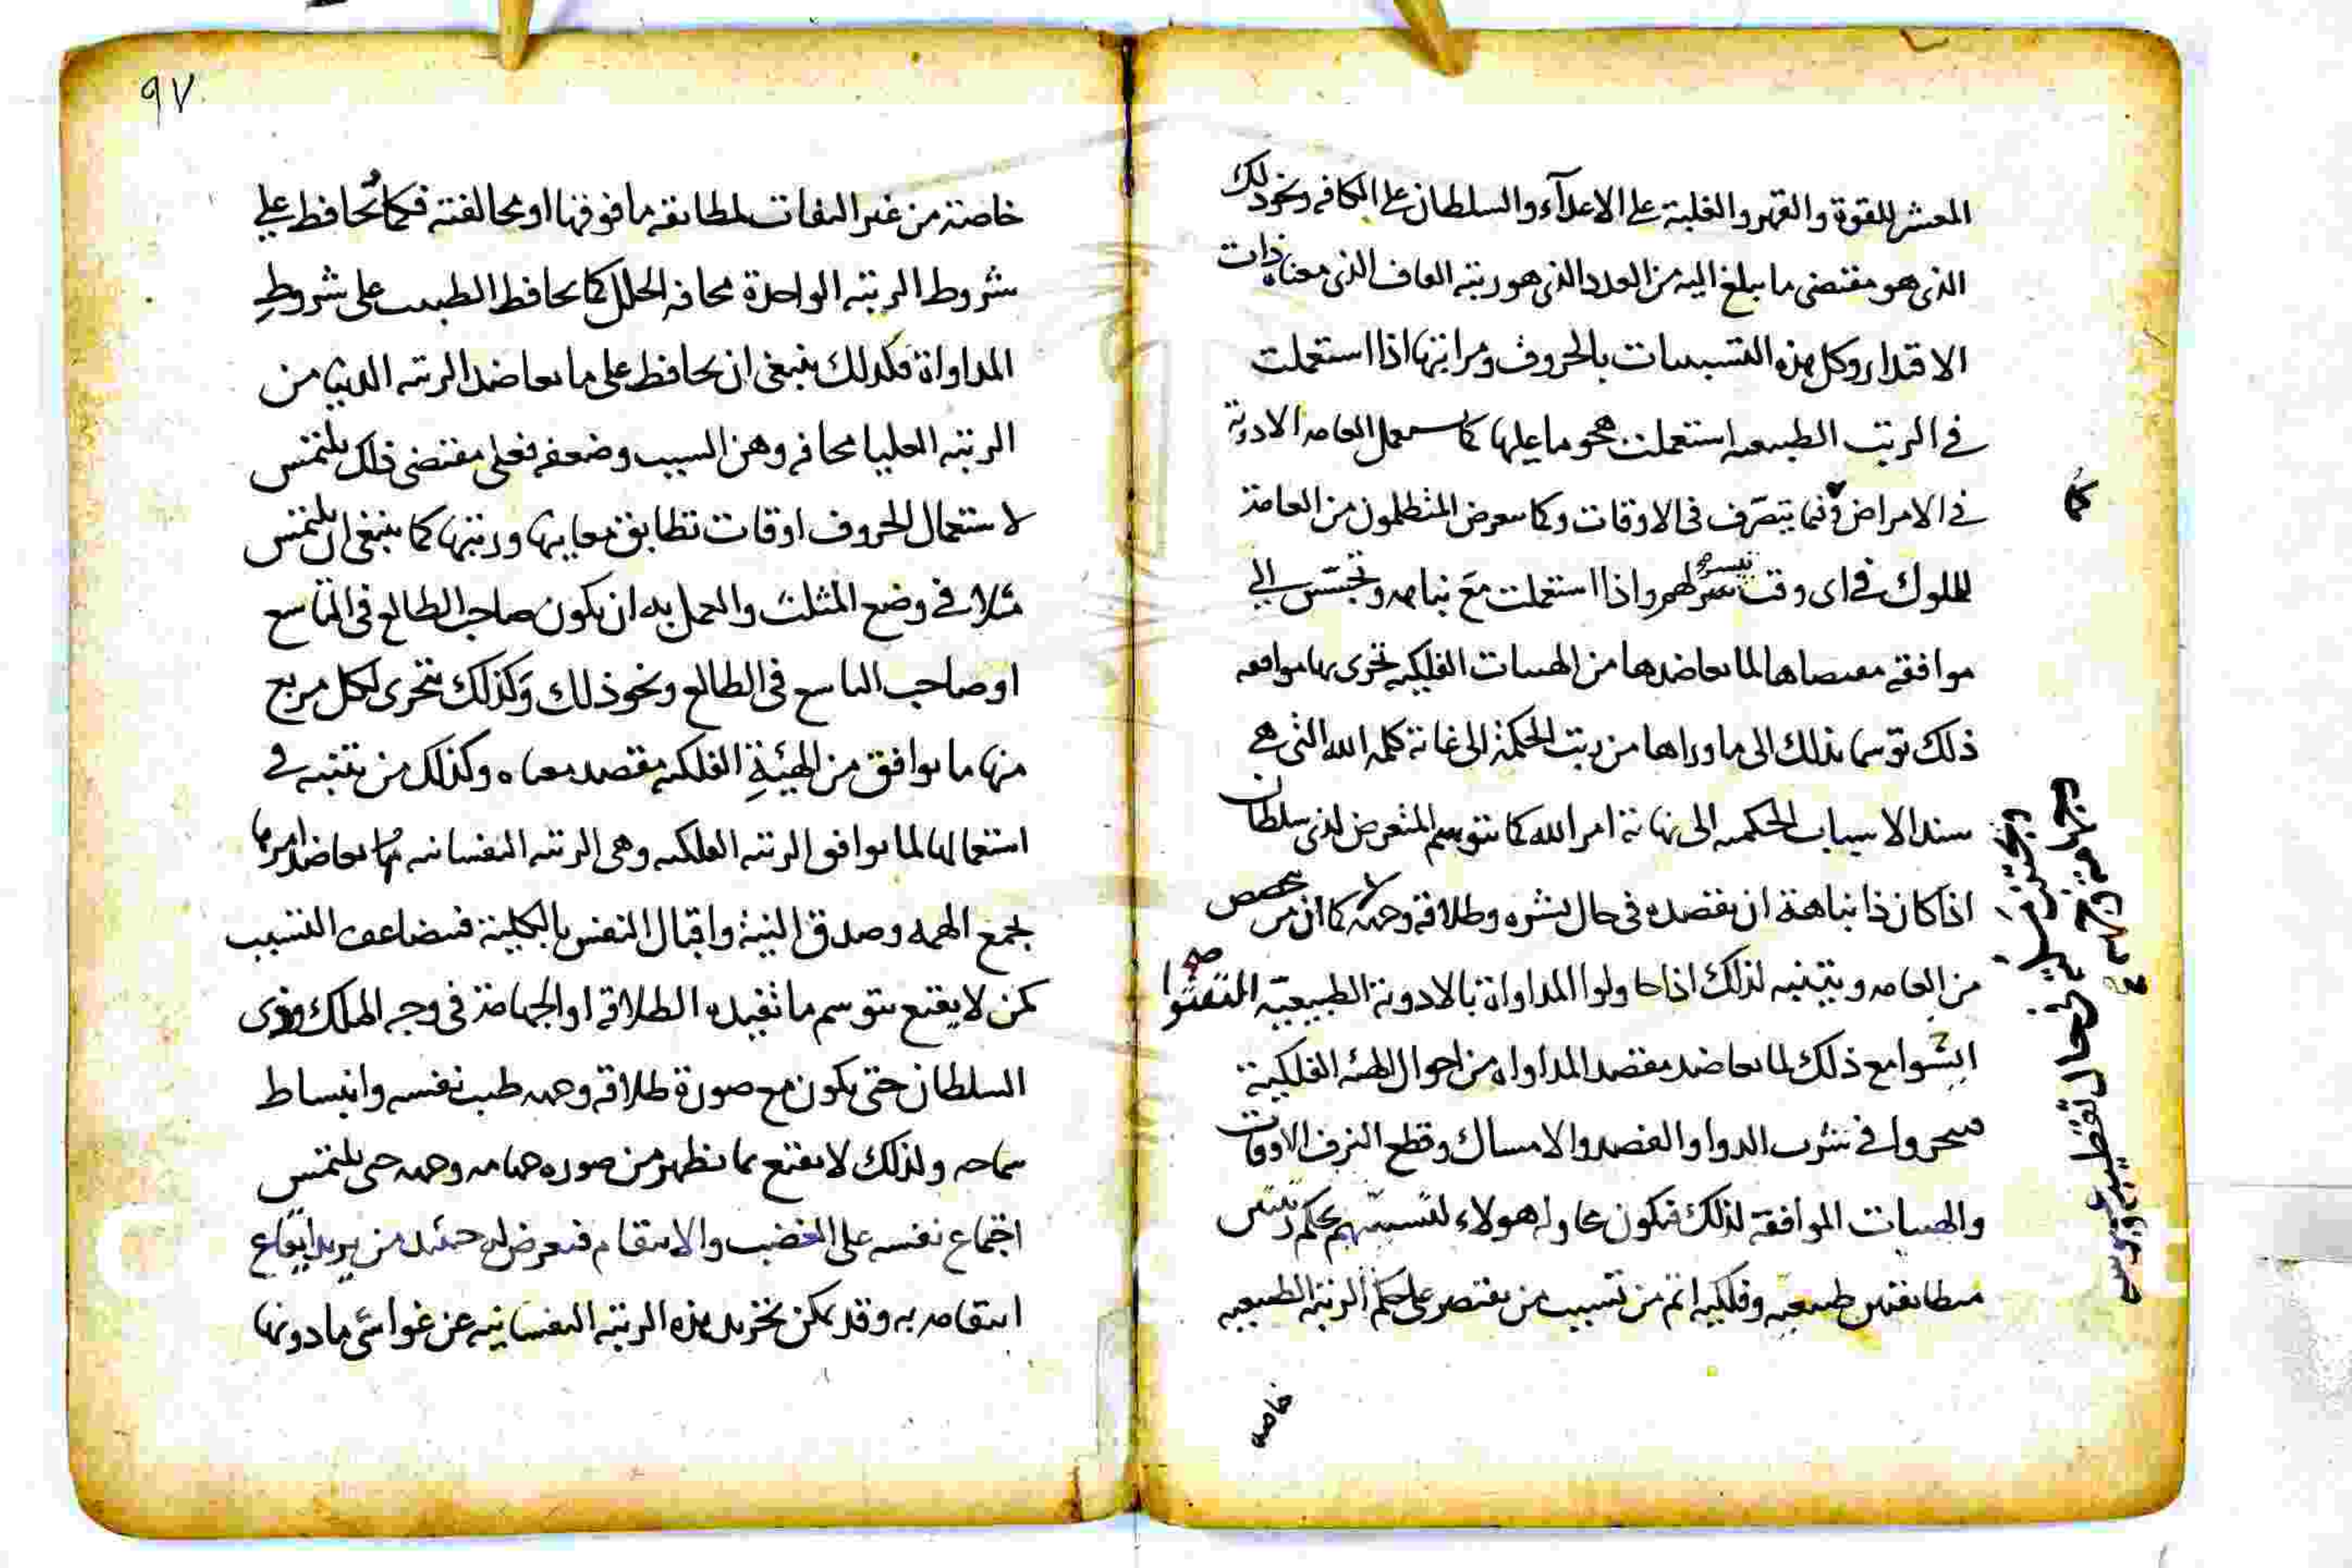 المعشر للقوة والقهر والغلبة على الاعدآء والسلطان على الكافه ونحو ذلك
الذى هو مقتضى ما يبلغ اليه من العدد الذى هو رتبه القاف الذى معناه ذات
الاقتدار وكل هذه التسببات بالحروف ومراتبها اذا استعملت
فى الرتب الطبيعيه استعملت هجوما عليها كما يستعمل العامه الادوية
فى الامراض فيما يتصرف فى الاوقات وكما يتعرض المتظلمون من العامة
للملوك فى اى وقت تيسر لهم واذا استعملت مع نباهه وتحسس الى
موافقة مقتضاها لما يعاضدها من الهيات الفلكيه تحرى بها موافقه
ذلك توسما بذلك الى ما وراها من رتب الحكمة الى غاية كلمه الله التى هى
سند الاسباب الحكميه الى نهاية امر الله كما يتوسم المتعرض لذى سلطان
اذا كان ذا نباهة ان يقصده فى حال بشره وطلاقة وجهه كما ان من
من العامه ويتنبه لذلك اذا حاولوا المداواة بالادوية الطبيعيّه التفتوا
مع ذلك لما يعاضد مقصد المداواه من احوال الهيئه الفلكية
فيتحروا فى شرب الدوا والفصد والامساك وقطع النزف الاوقات
والهيات الموافقة لذلك فيكون محاوله هولاء لتسببهم بحكم رتبتين
متطابقتين طبيعيه وفلكيه اتم من تسبب من يقتصر على حكم الرتبه الطبيعيه
خاصه
كما
٩٧
خاصة من غير التفات لمطابقه ما فوقها او مخالفته فكما تحافظ على
شروط الرتبه الواحدة مخافه الخلل كما يحافظ الطبيب على شروط
المداواة فكذلك ينبغى ان يحافظ على ما يعاضد الرتبه الدنيا من
الرتبه العليا مخافه وهن السبب وضعفه فعلى مقتضى ذلك يلتمس
لاستعمال الحروف اوقات تطابق معانيها ورتبتها كما ينبغى ان يلتمس
مثلا فى وضع المثلث والعمل به ان يكون صاحب الطالع فى التاسع
او صاحب التاسع فى الطالع ونحو ذلك وكذلك يتحرى لكل مربع
منها ما يوافق من الهيئة الفلكيه مقصد معناه وكذلك من يتنبه فى
استعمالها لما يوافق الرتبه الفلكيه وهى الرتبه النفسانيه مما يعاضد امرها
بجمع الهمه وصدق النية واقبال النفس بالكلية فيتضاعف التسبب
كمن لا يقنع بتوسم ما تفيده الطلاقة او الجهامة فى وجه الملك وذى
السلطان حتى يكون مع صورة طلاقة وجهه طيب نفسه وانبساط
سماحه ولذلك لا يقنع بما يظهر من صوره جهامه وجهه حتى يلتمس
اجتماع نفسه على الغضب والانتقام فيتعرض له حينئذ من يريد ايقاع
انتقامه به وقد يمكن تجريد هذه الرتبه النفسانيه عن غواشى ما دونها